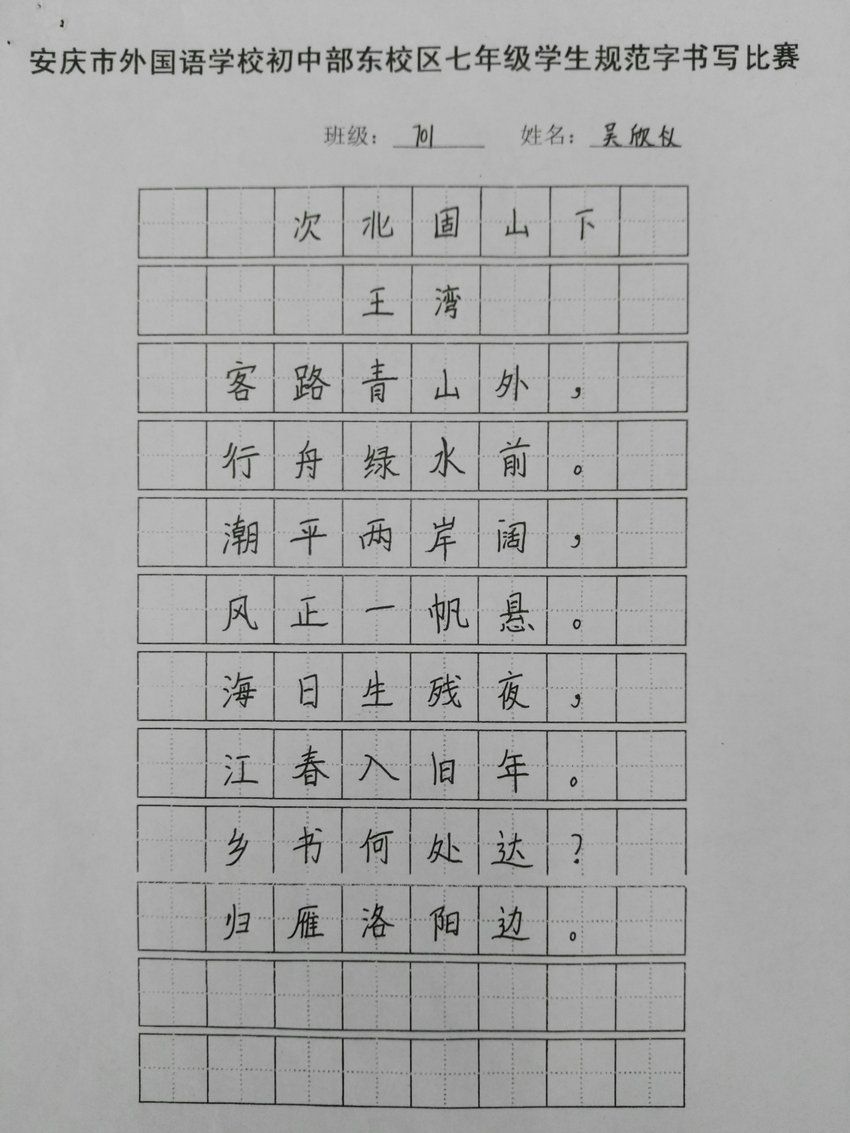 安庆市外国语学校初中部东校区七年级学生规范字书写比赛
班级：701 姓名：吴欣仪
次北固山下
王湾
客路青山外，
行舟绿水前。
潮平两岸阔，
风正一帆悬。
海日生残夜，
江春入旧年。
乡书何处达？
归雁洛阳边。